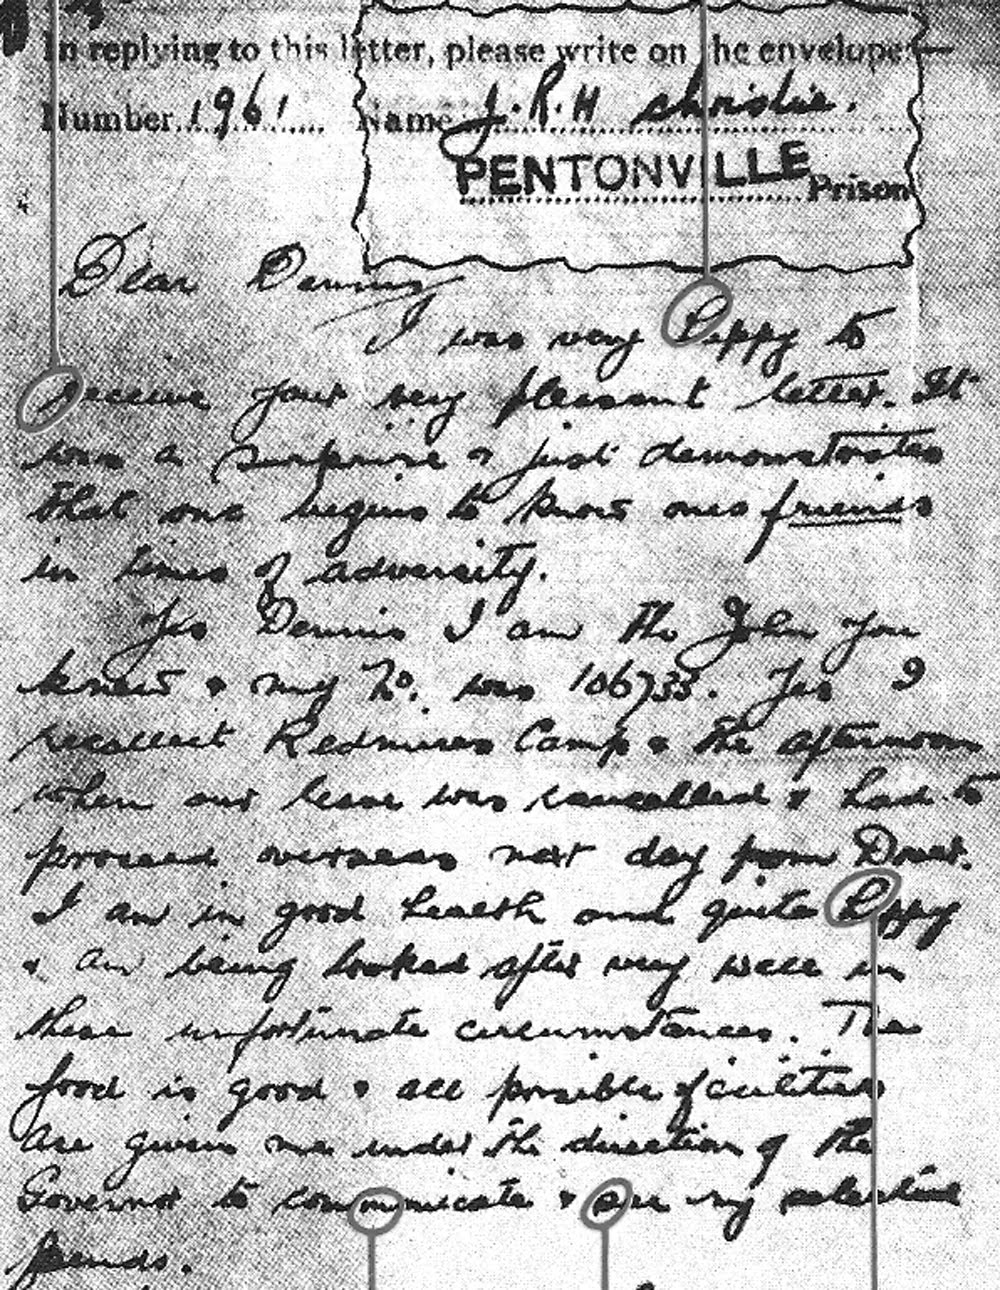 In replying to this letter, please write on the envelope:—
Number 1961 Name J.R.H Christie.
PENTONVILLE Prison
Dear Dennis
I was very happy to
receive your very pleasant letter. It
was a surprise & just demonstrates
that one begins to know ones friends
in times of adversity.
Yes Dennis I am the John you
knew & my No. was 106733. Yes I
recollect Redmires Camp & the afternoon
when our leave was cancelled & had to
proceed overseas next day from Dover.
I am in good health and quite happy
& am being looked after very well in
these unfortunate circumstances. The
food is good & all possible facilities
are given me under the direction of the
Governor to communicate & see my
friends.